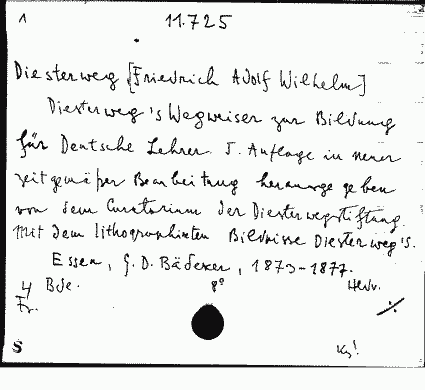 1 11.725
Diesterweg [Friedrich Adolf Wilhelm]
Diesterweg's Wegweiser zur Bildung
für Deutsche Lehrer. 5. Auflage in neuer
zeitgemäßer Bearbeitung herausgegeben
von dem Curatorium der Diesterwegstiftung.
Mit dem lithographierten Bildnisse Diesterweg's.
Essen, G. D. Bädeker, 1873-1877.
4 Bde. 8°
Fr.
S